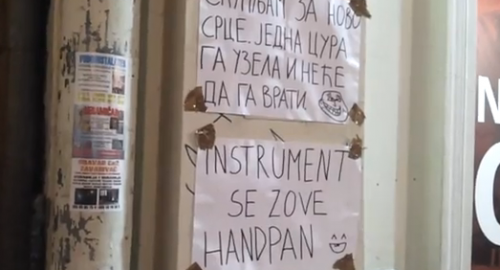 СКУПЉАМ ЗА НОВО
СРЦЕ. ЈЕДНА ЦУРА
ГА УЗЕЛА И НЕЋЕ
ДА ГА ВРАТИ.
INSTRUMENT
SE ZOVE
HANDPAN